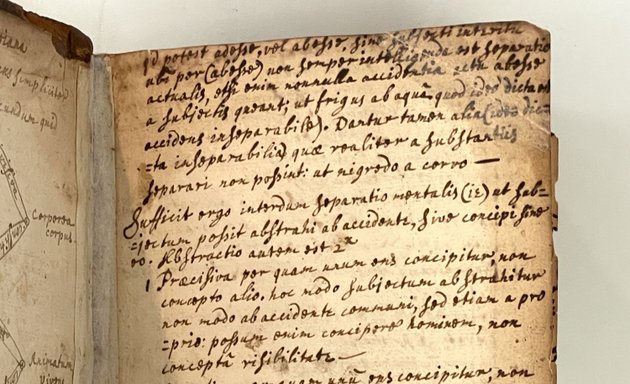 tiana
us simpliciter
cundum quid
Corporea
corpus.
Animatum
Vivens
Id potest adesse, vel abesse, sine subjecti interitu
ubi per (abesse) non semper intelligenda est separatio
actualis, etsi enim nonnulla accidentia actu abesse
a subjectis queant; ut frigus ab aquâ quod ideo dicta est
accidens inseparabile). Dantur tamen alia (ideo dic-
=ta inseparabilia) quæ realiter a substantiis
separari non possint: ut nigredo a corvo —
Sufficit ergo interdum separatio mentalis (ie) ut sub-
=jectum possit abstrahi ab accidente, sive concipi sine
eo. Abstractio autem est 2x
1 Præcisiva per quam unum ens concipitur, non
concepto alio. hoc modo subjectum abstrahitur
non modo ab accidente communi, sed etiam a pro
=prio: possum enim concipere hominem, non
conceptâ risibilitate —
quam unū ens concipitur, non